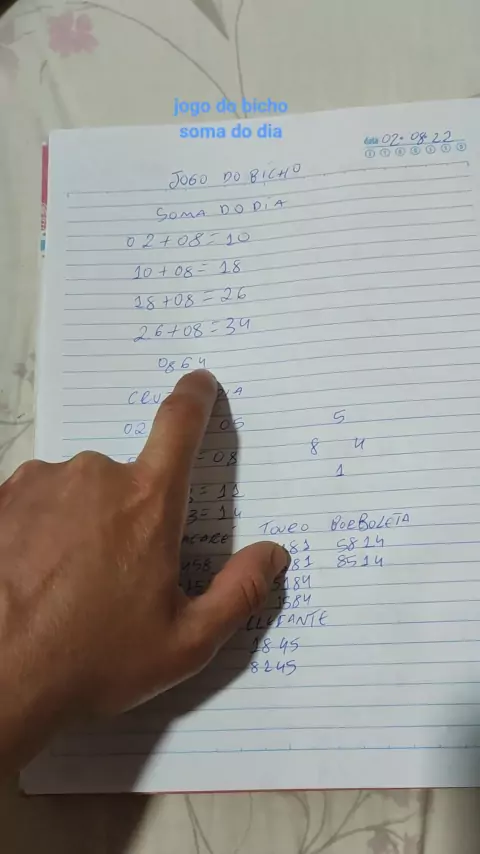 jogo do bicho
soma do dia
data 02.08.22
JOGO DO BICHO
SOMA DO DIA
02+08=10
10+08=18
18+08=26
26+08=34
0864
02 05
5
8 4
= 08
1
= 11
3=14
TOURO BORBOLETA
481 5814
458 81 8514
5184
1584
ELEFANTE
1845
8245